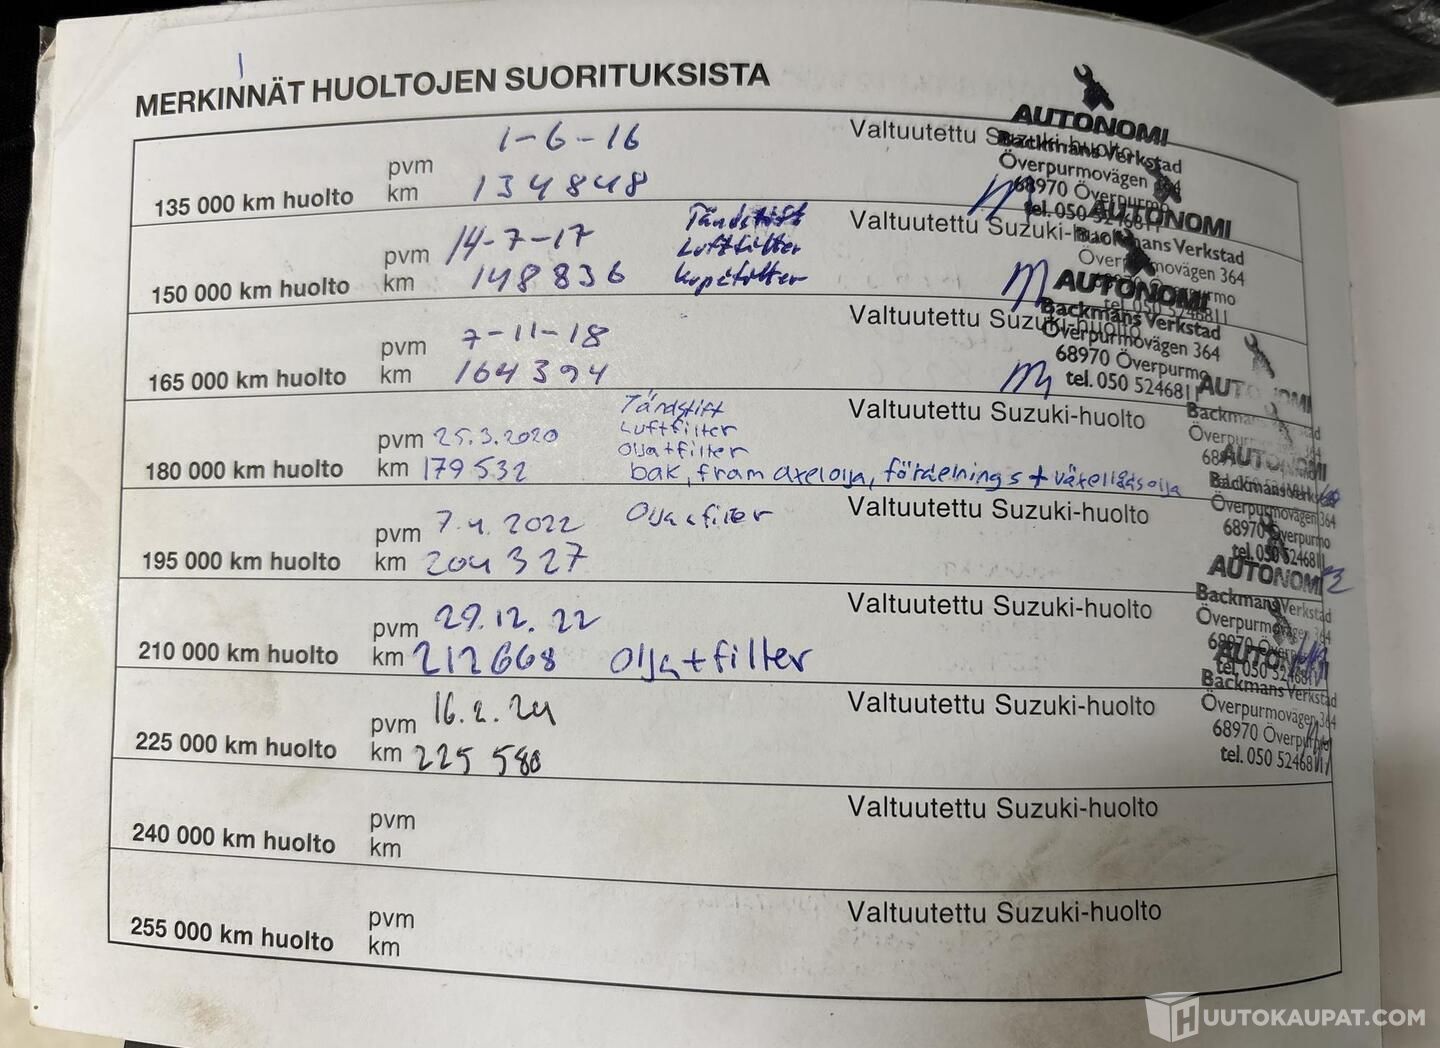 MERKINNÄT HUOLTOJEN SUORITUKSISTA
135 000 km huolto
pvm 1-6-16
km 134848
Valtuutettu Suzuki-huolto
AUTONOMI
Backmans Verkstad
Överpurmovägen 364
68970 Överpurmo
tel. 050 5246811
150 000 km huolto
pvm 14-7-17
km 148836
Tändstift
Luftfilter
Kupéfilter
Valtuutettu Suzuki-huolto
AUTONOMI
Backmans Verkstad
Överpurmovägen 364
68970 Överpurmo
tel. 050 5246811
165 000 km huolto
pvm 7-11-18
km 164394
Valtuutettu Suzuki-huolto
AUTONOMI
Backmans Verkstad
Överpurmovägen 364
68970 Överpurmo
tel. 050 5246811
180 000 km huolto
pvm 25.3.2020
km 179532
Tändstift
Luftfilter
Olja+filter
bak, fram axelolja, fördelnings + växellådsolja
Valtuutettu Suzuki-huolto
AUTONOMI
Backmans
195 000 km huolto
pvm 7.4.2022
km 204 327
Olja+filter
Valtuutettu Suzuki-huolto
AUTONOMI
Backmans Verkstad
Överpurmovägen 364
68970 Överpurmo
tel. 050 5246811
210 000 km huolto
pvm 29.12.22
km 212668
Olja+filter
Valtuutettu Suzuki-huolto
AUTONOMI
Backmans Verkstad
Överpurmovägen 364
68970 Överpurmo
tel. 050 5246811
225 000 km huolto
pvm 16.2.24
km 225 580
Valtuutettu Suzuki-huolto
AUTONOMI
Backmans Verkstad
Överpurmovägen 364
68970 Överpurmo
tel. 050 5246811
240 000 km huolto
pvm
km
Valtuutettu Suzuki-huolto
255 000 km huolto
pvm
km
Valtuutettu Suzuki-huolto
HUUTOKAUPAT.COM